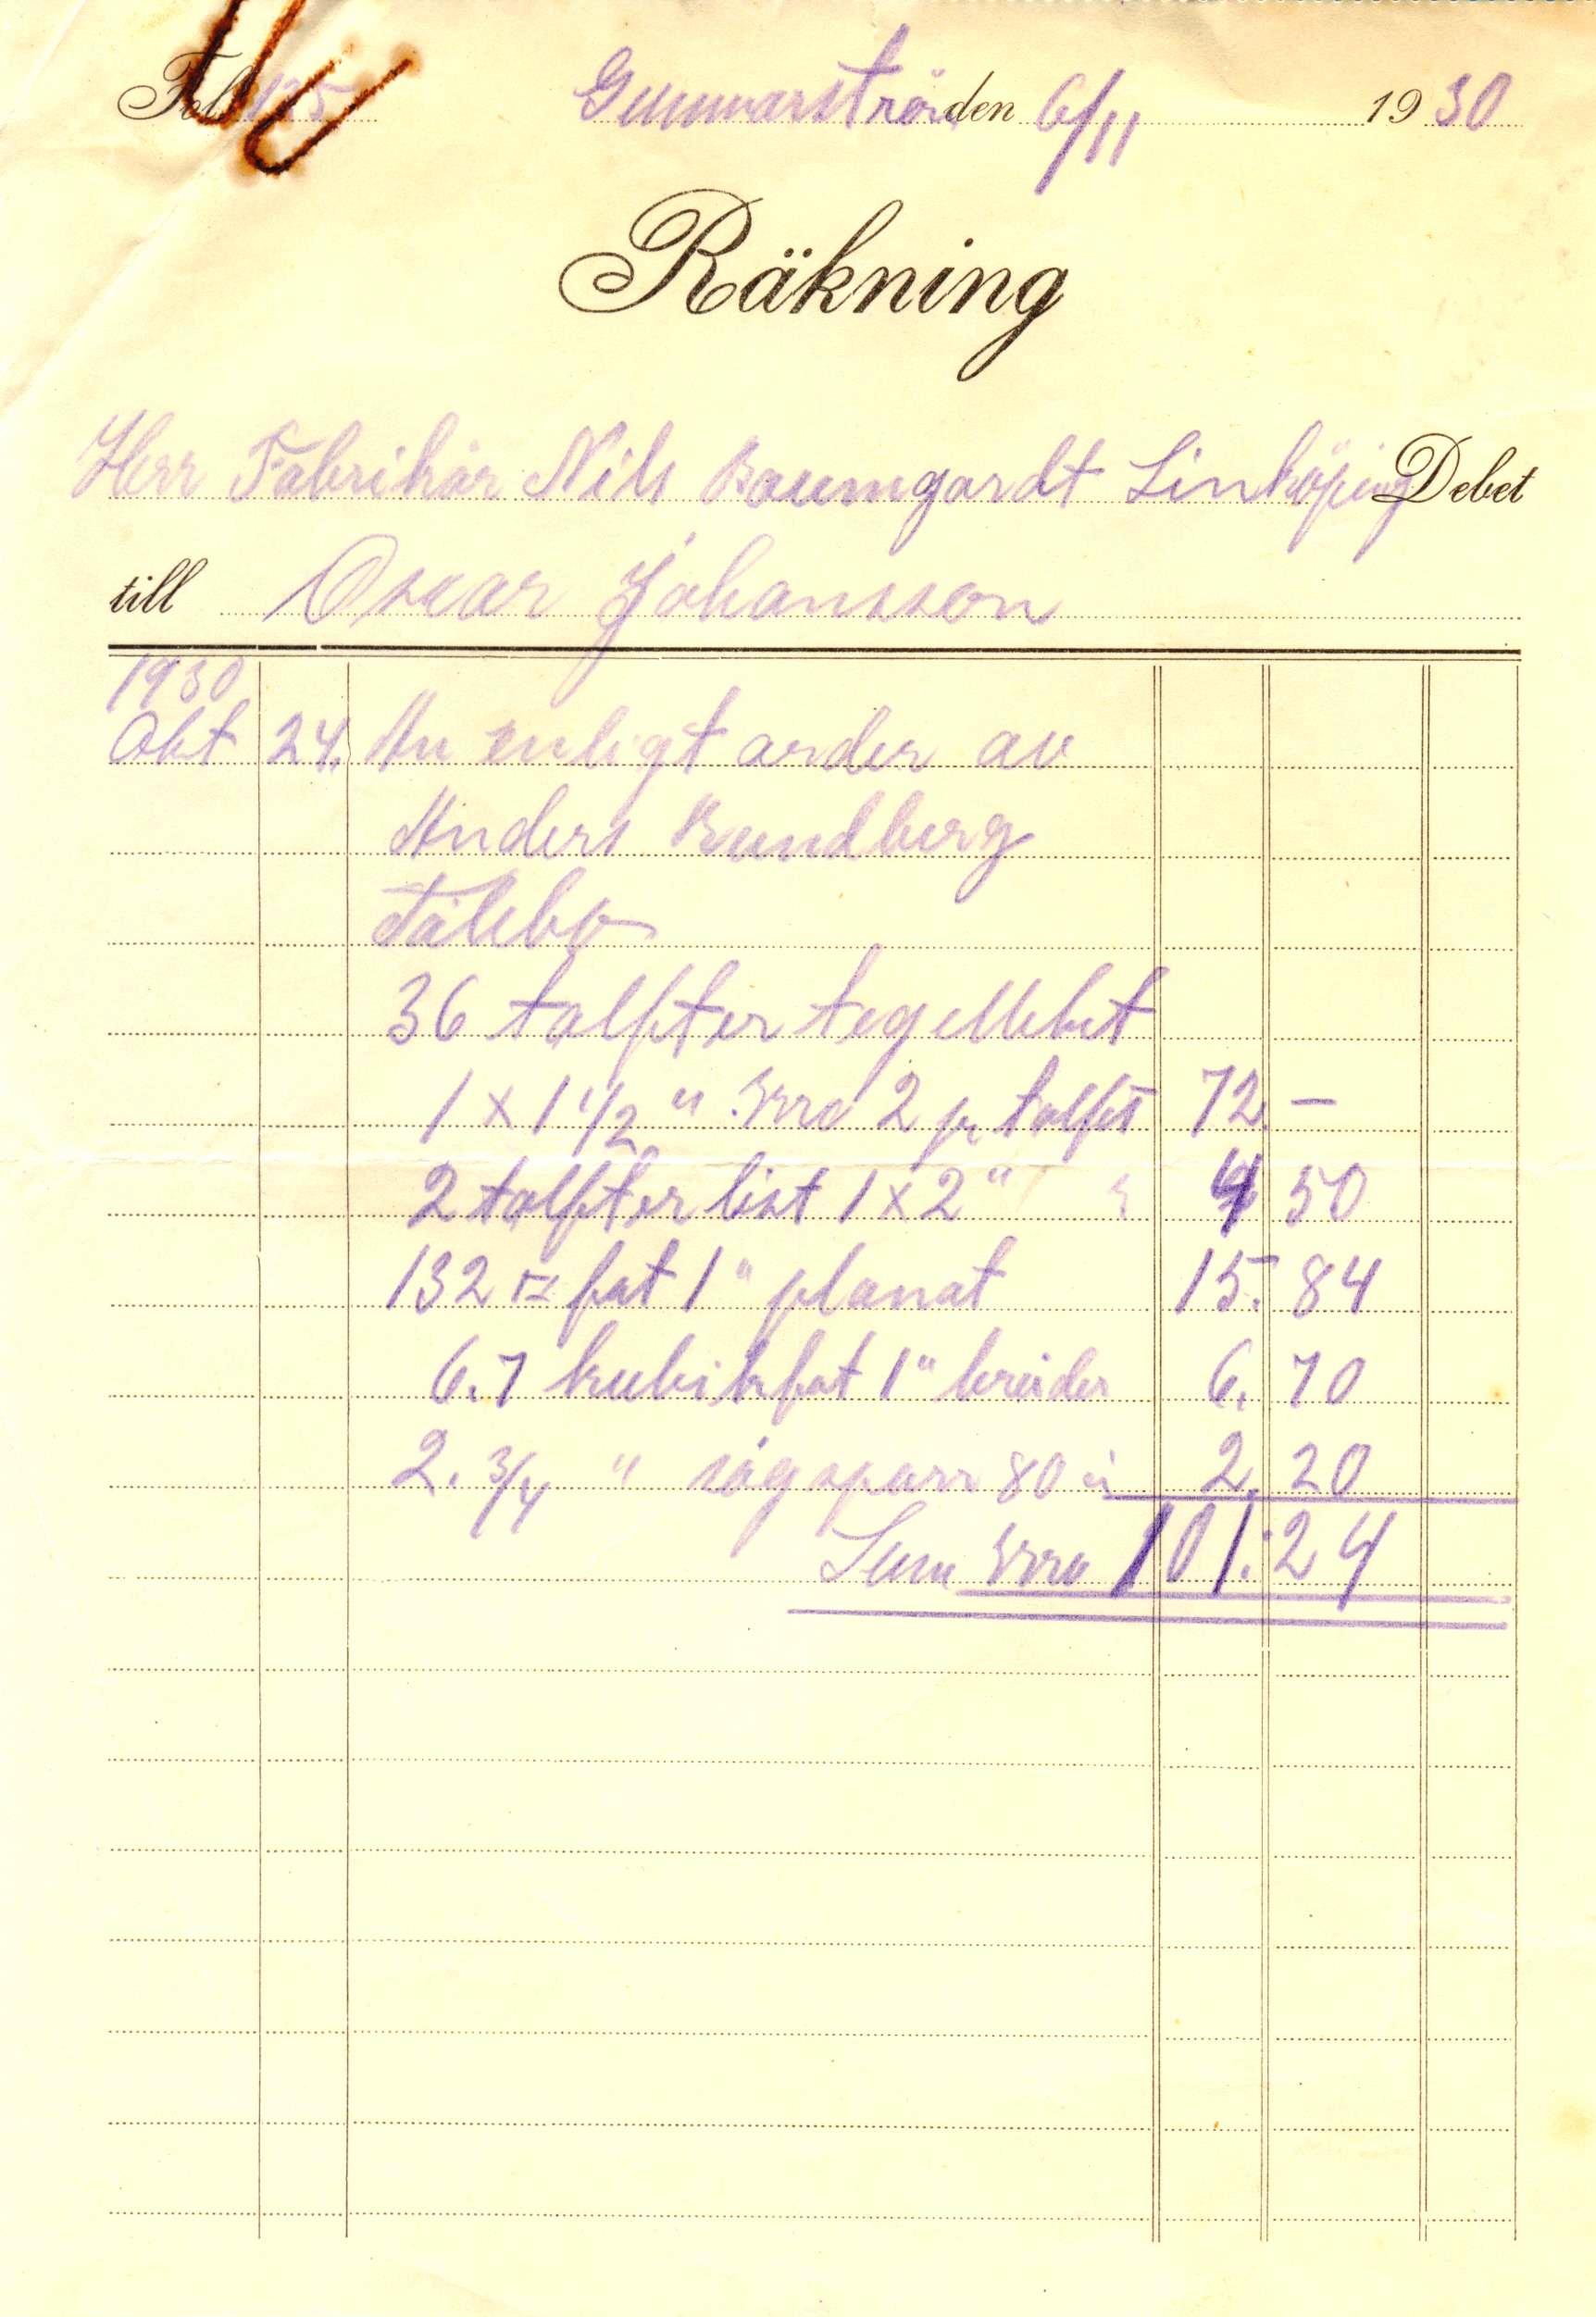 Fol. 125 Gunnarströ den 6/11 1930
Räkning
Herr Fabrikär Nils Baumgardt Linköping Debet
till Oscar Johansson
1930
Okt 24. An enligt order av
Anders Bundberg
Tålebo
36 tolfter tegellekt
1 x 1 1/2 " Kro 2 pr tolft 72. —
2 tolfter list 1 x 2 " 4 50
132 □ fot 1 " planat 15. 84
6.7 kubikfot 1 " bräder 6. 70
2. 3/4 " sågsparr 80 ö 2. 20
Sum Kro 101. 24